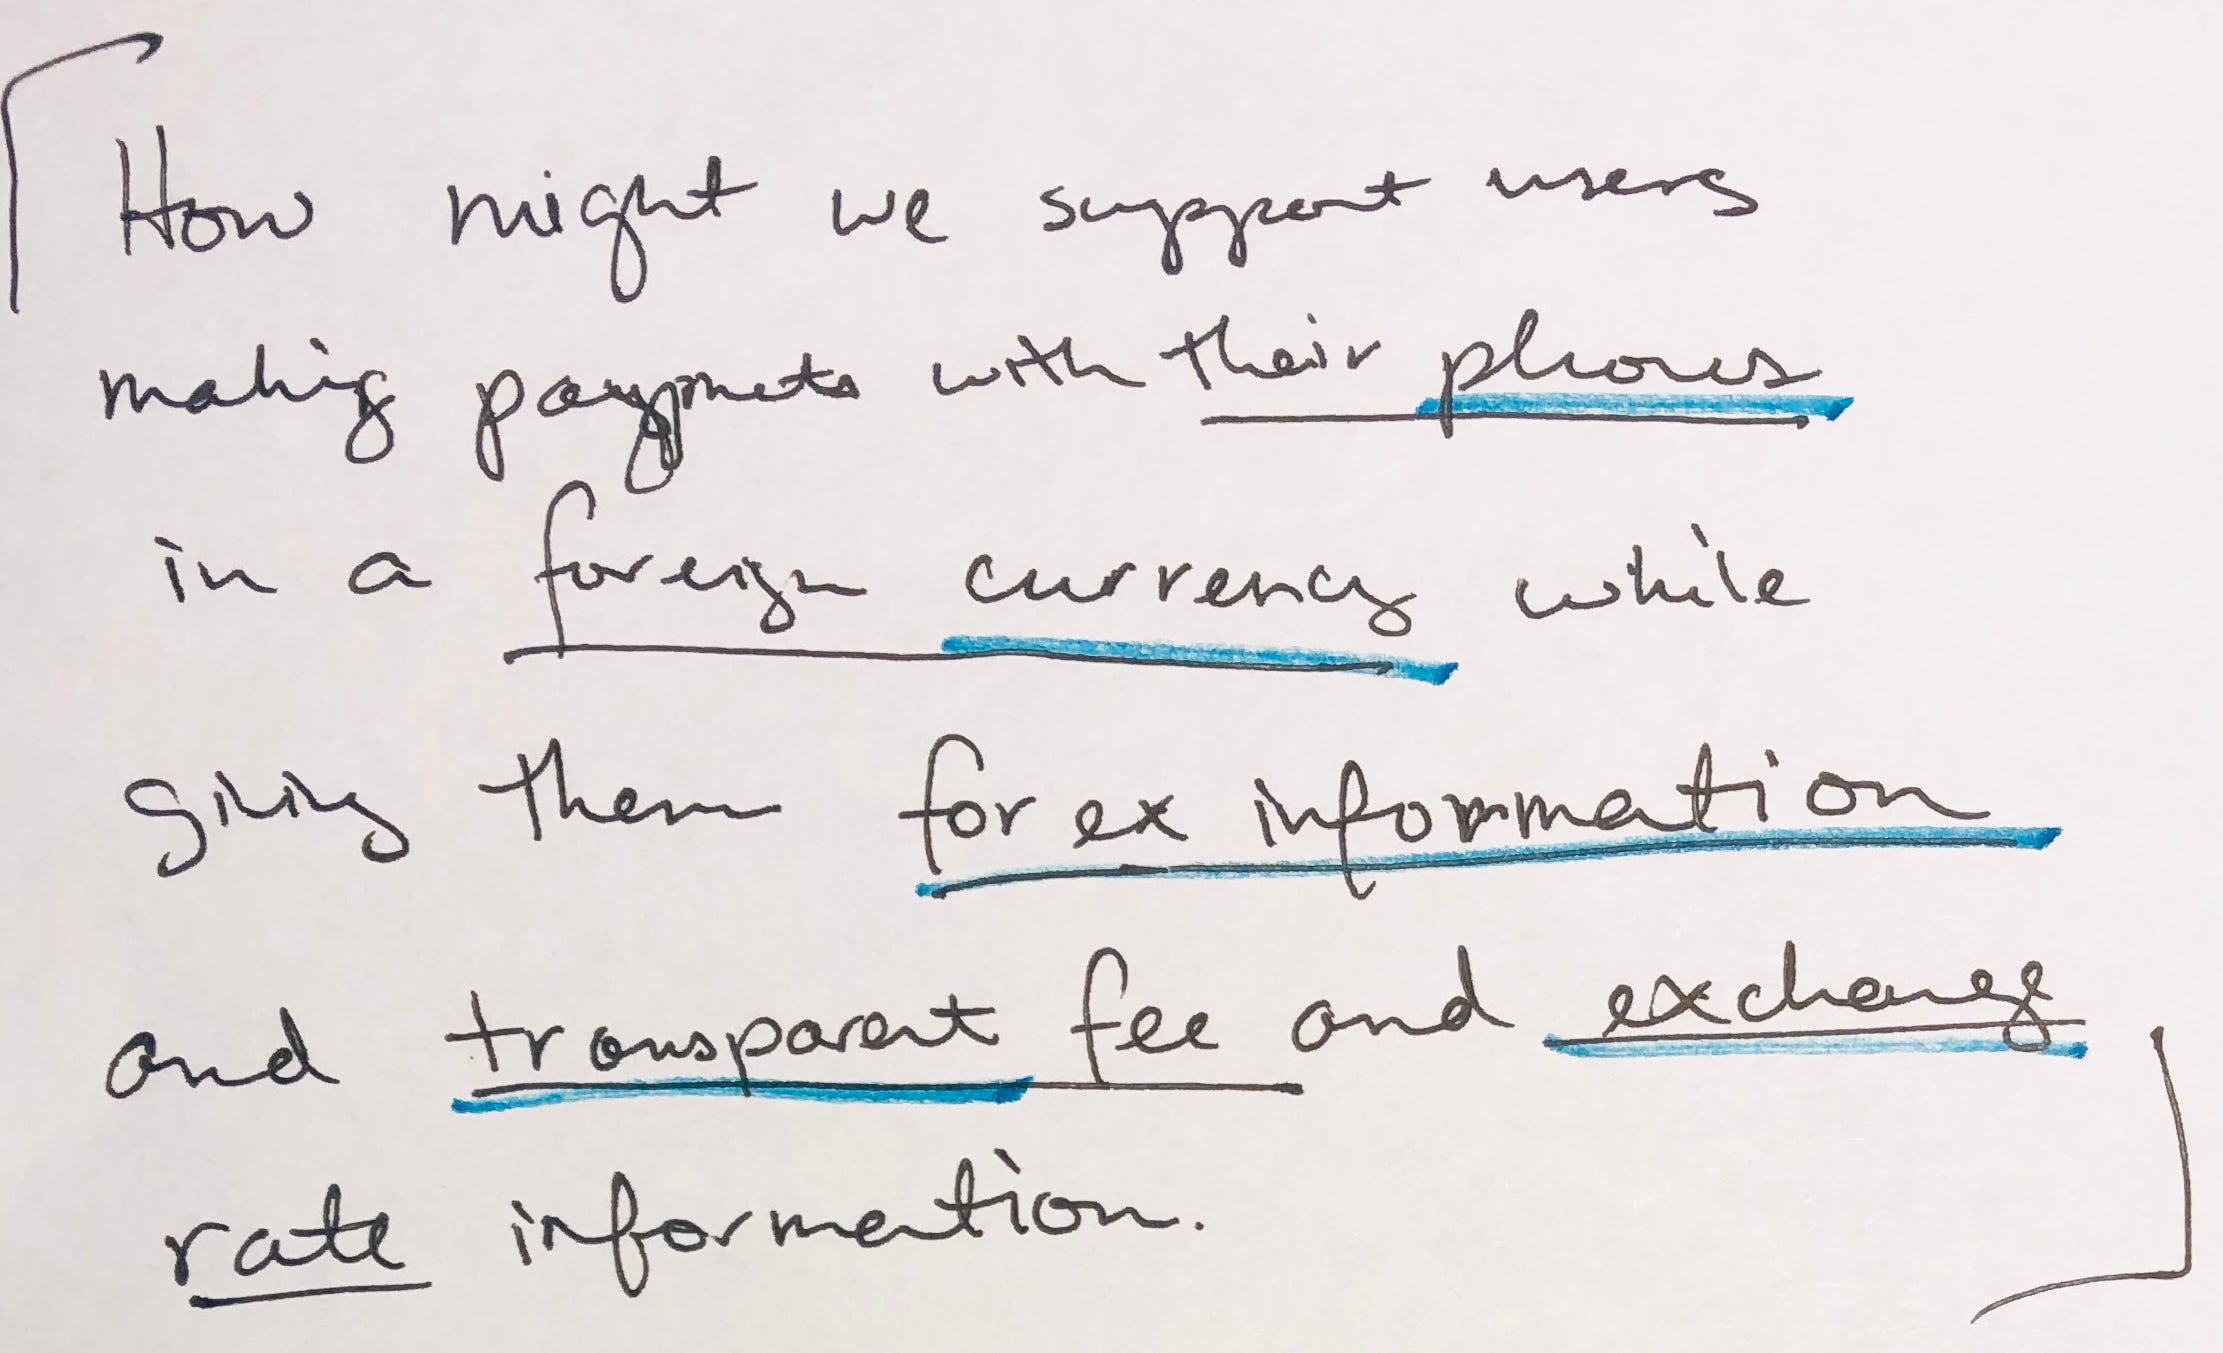 How might we support users
making payments with their phones
in a foreign currency while
giving them forex information
and transparent fee and exchange
rate information.